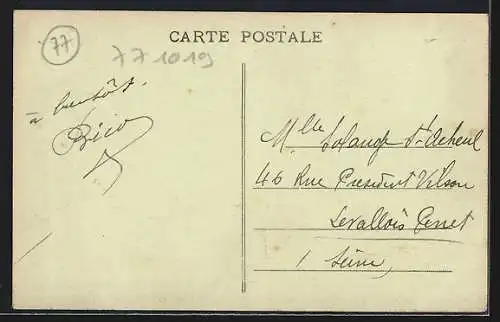 CARTE POSTALE
77
771019
à bientôt.
Bico
Mlle St-Acheul
46 Rue President Wilson
Levallois Perret
Seine